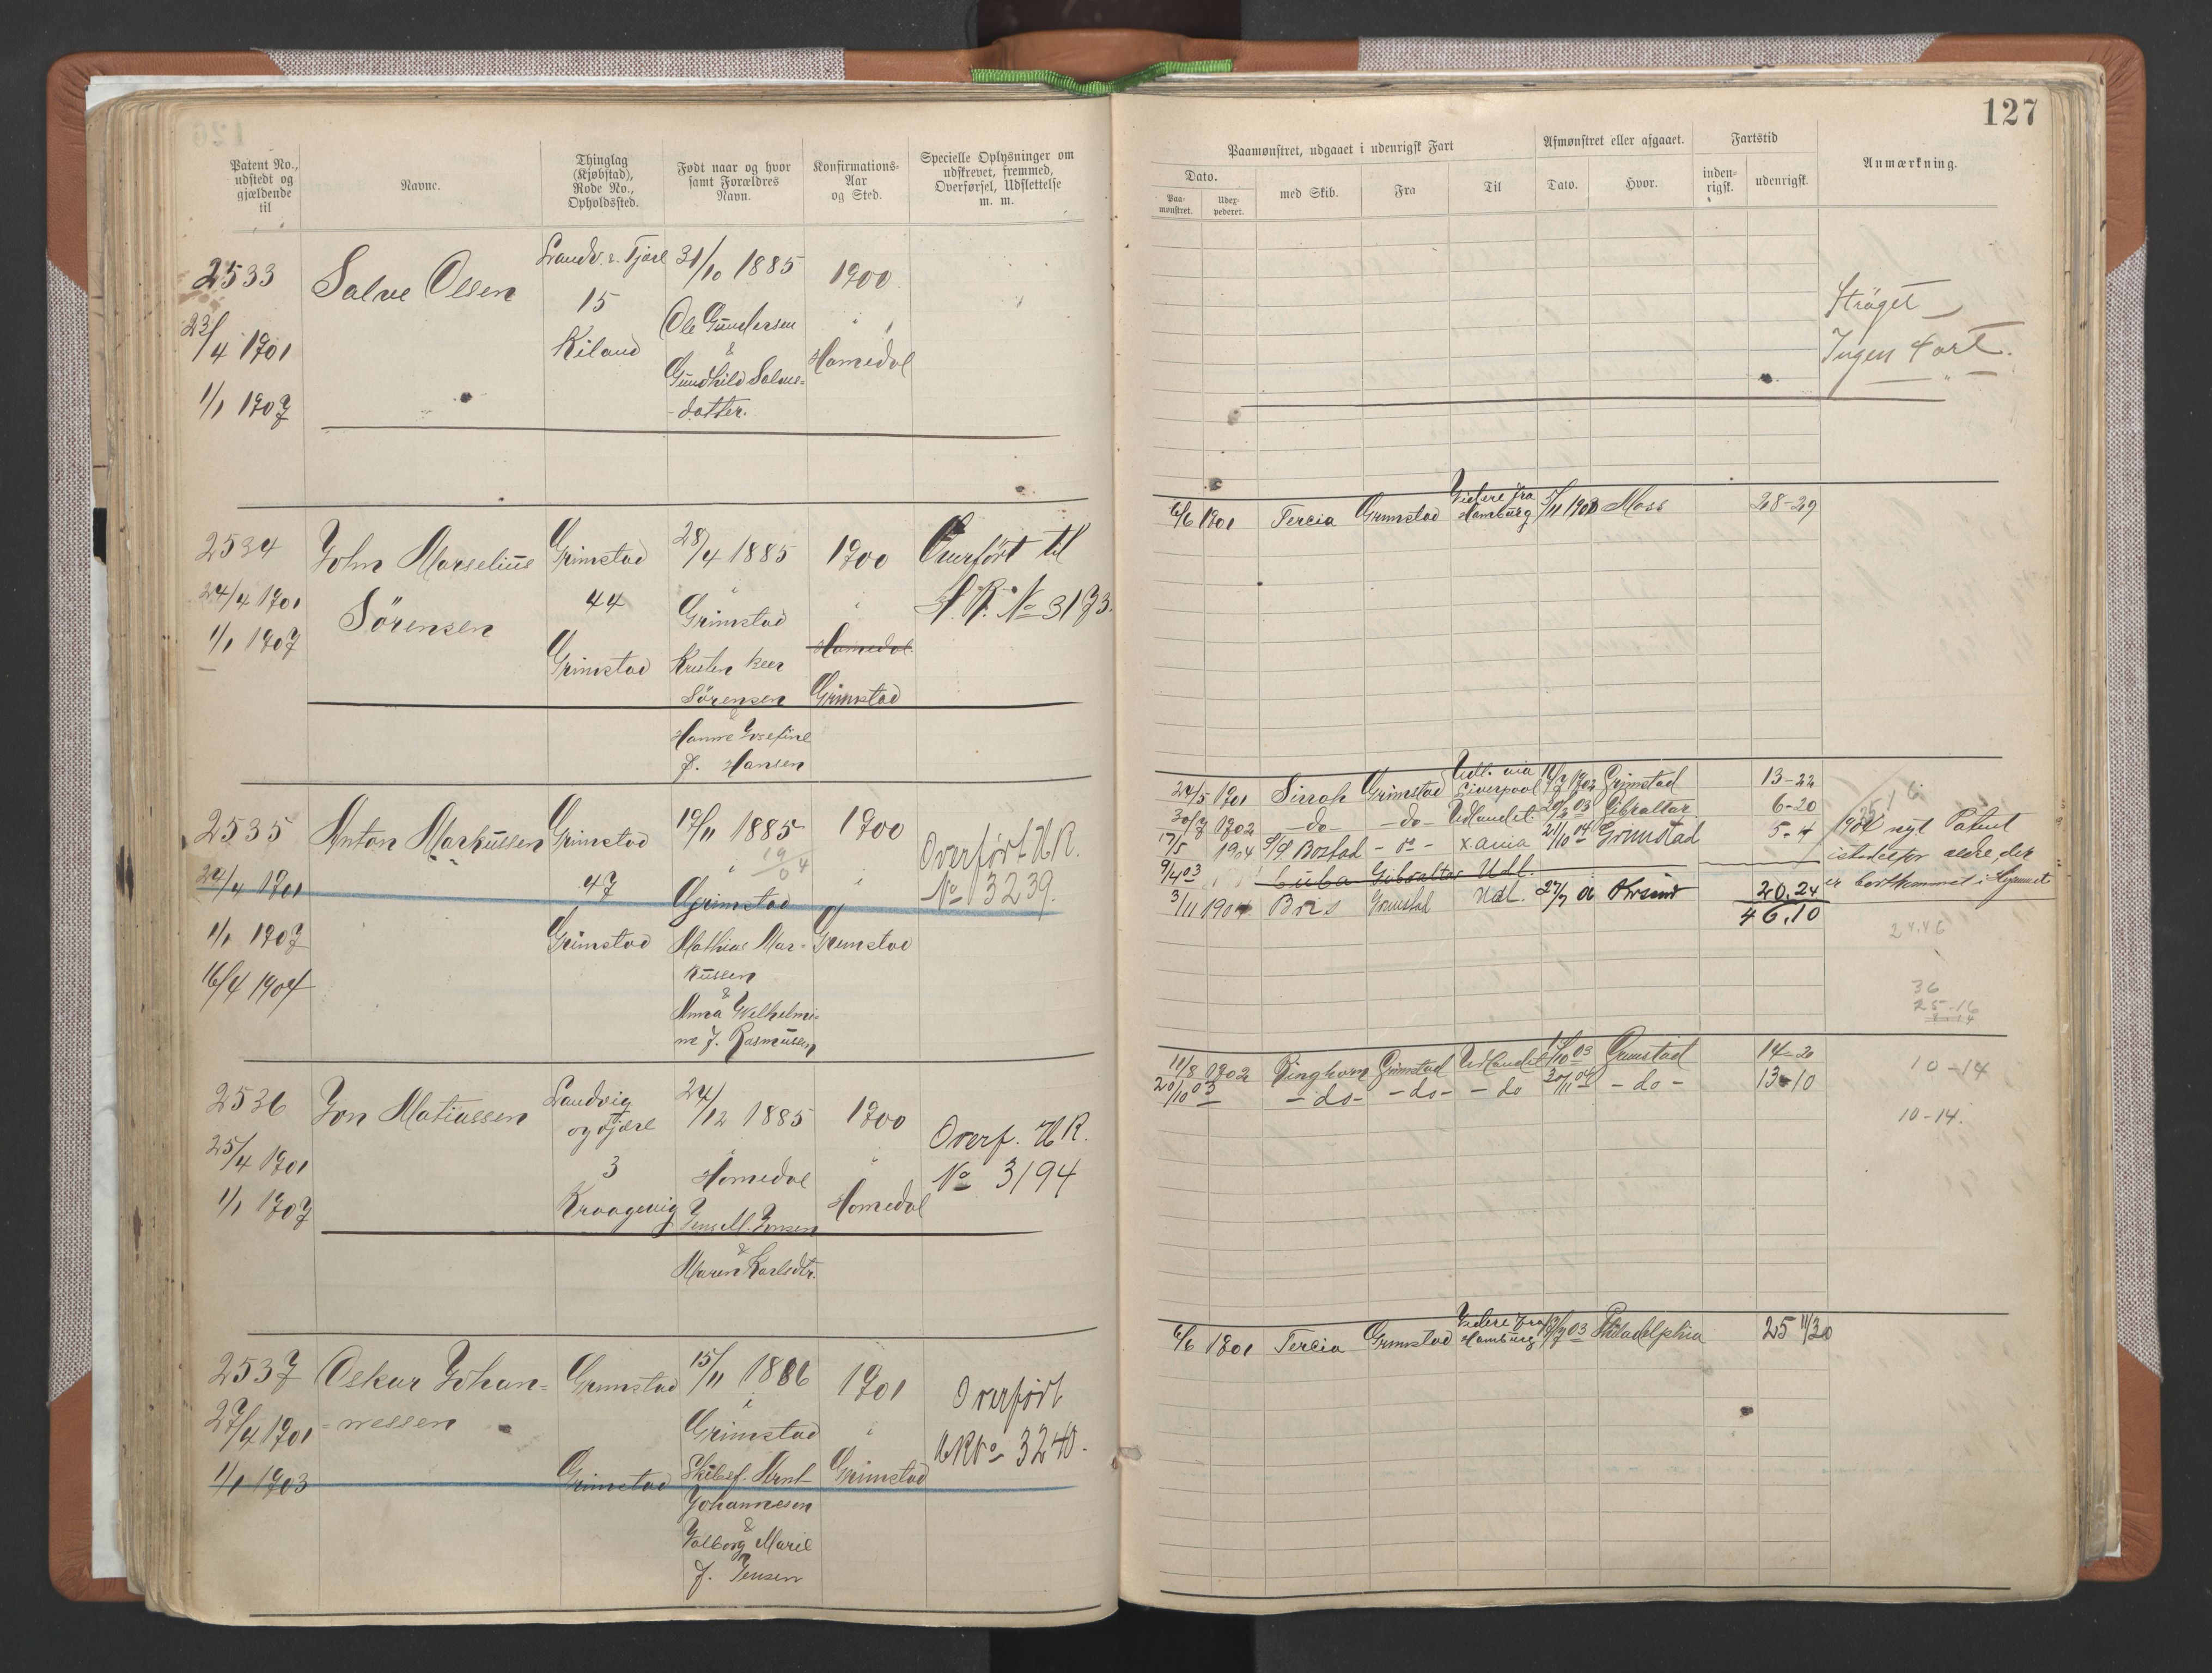 127
Patent No., udstedt og gjældende til
Navne.
Thinglag (Kjøbstad), Rode No., Opholdssted.
Født naar og hvor samt Forældres Navn.
Konfirmations-Aar og Sted.
Specielle Oplysninger om udskrevet, fremmed, Overførsel, Udslettelse m. m.
Paamønstret, udgaaet i udenrigsk Fart
Dato.
Paa-mønstret.
Udex-pederet.
med Skib.
Fra
Til
Afmønstret eller afgaaet.
Dato.
Hvor.
Fartstid
inden-rigsk.
udenrigsk.
Anmærkning.
2533
23/4 1901
1/1 1907
Salve Olsen
Landv. & Fjære
15
Kiland
31/10 1885
Ole Gundersen
&
Gundhild Salve-
-datter.
1900
Homedal
Strøget
Ingen Fart.
2534
24/4 1901
1/1 1907
John Marselius
Sörensen
Grimstad
44
Grimstad
28/4 1885
Grimstad
Kristen Peer
Sörensen
&
Hanne Josefine
f. Hansen
1900
Homedal
Grimstad
Overført til
H.R. No 3173.
6/6 1901 Tercia Grimstad Videre fra Hamburg 5/11 1903 Moss 28-29
2535
24/4 1901
1/1 1907
16/4 1904
Anton Markussen
Grimstad
47
Grimstad
19/11 1885
19/04
Grimstad
Mathias Mar-
kussen
&
Anna Wilhelmi-
ne f. Rasmussen
1900
Grimstad
Overført H.R.
No 3239.
24/5 1901 Sirrah Grimstad Udl. via Liverpool 1902 Grimstad 13-22
30/7 1902 -do- -do- Udlandet 03 Gibraltar 6-20
17/5 1904 S/S Bostad - do - X.ania 21/10 04 Grimstad 5-4
9/4 03 Cuba Gibraltar Udl.
3/11 1904 Bris Grimstad Udl. 27/7 06 Krsund 20.24
46.10
1904 nyt Patent
istedetfor ældre, der
er bortkommet i Hjemmet
24.46
36
25-16
2536
25/4 1901
1/1 1907
Jon Matiassen
Landvig
og Fjære
3
Kraagevig
24/12 1885
Homedal
Jens M. Jonsen
&
Maren Karlsdtr.
1900
Homedal
Overf. H.R.
No 3194
11/8 1902 Ringhorn Grimstad Udlandet 10 03 Grimstad 14-20
20/10 03 -do- -do- -do 30/11 04 -do- 13-10
10-14
10-14.
2537
27/4 1901
1/1 1903
Oskar Johan-
-nessen
Grimstad
Grimstad
15/11 1886
Grimstad
Skibsf. Arnt
Johannesen
&
Valborg Marie
f. Jensen
1901
Grimstad
Overført
HR No 3240.
6/6 1901 Tercia Grimstad Videre fra Hamburg 03 Philadelphia 25 11/30